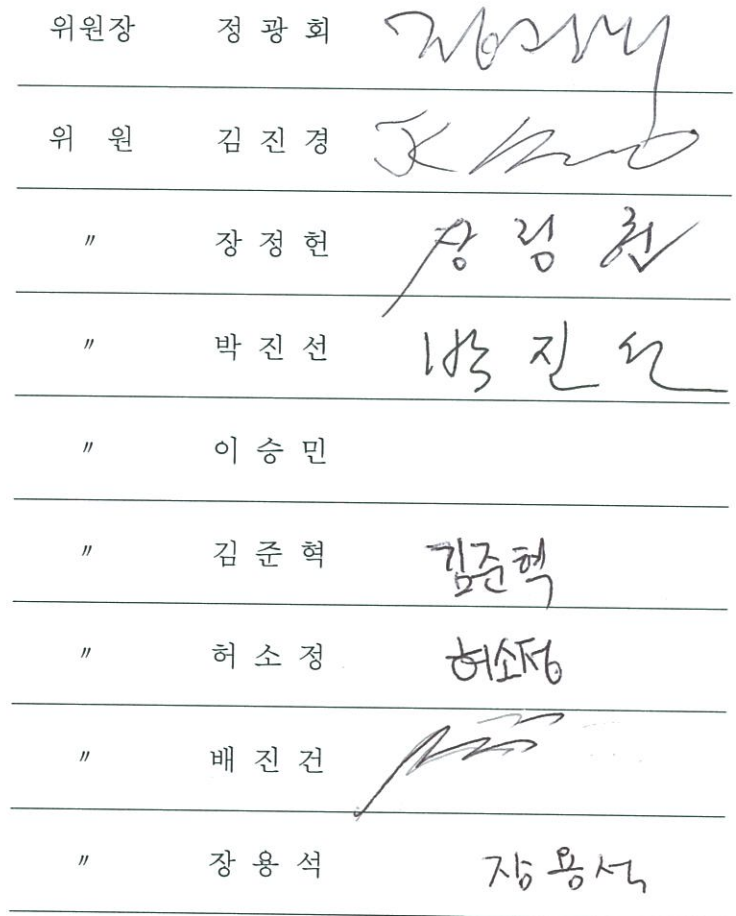 위원장 정 광 회
위 원 김 진 경 JK
〃 장 정 헌 장 정 헌
〃 박 진 선 박 진 선
〃 이 승 민
〃 김 준 혁 김준혁
〃 허 소 정 허소정
〃 배 진 건
〃 장 용 석 장용석